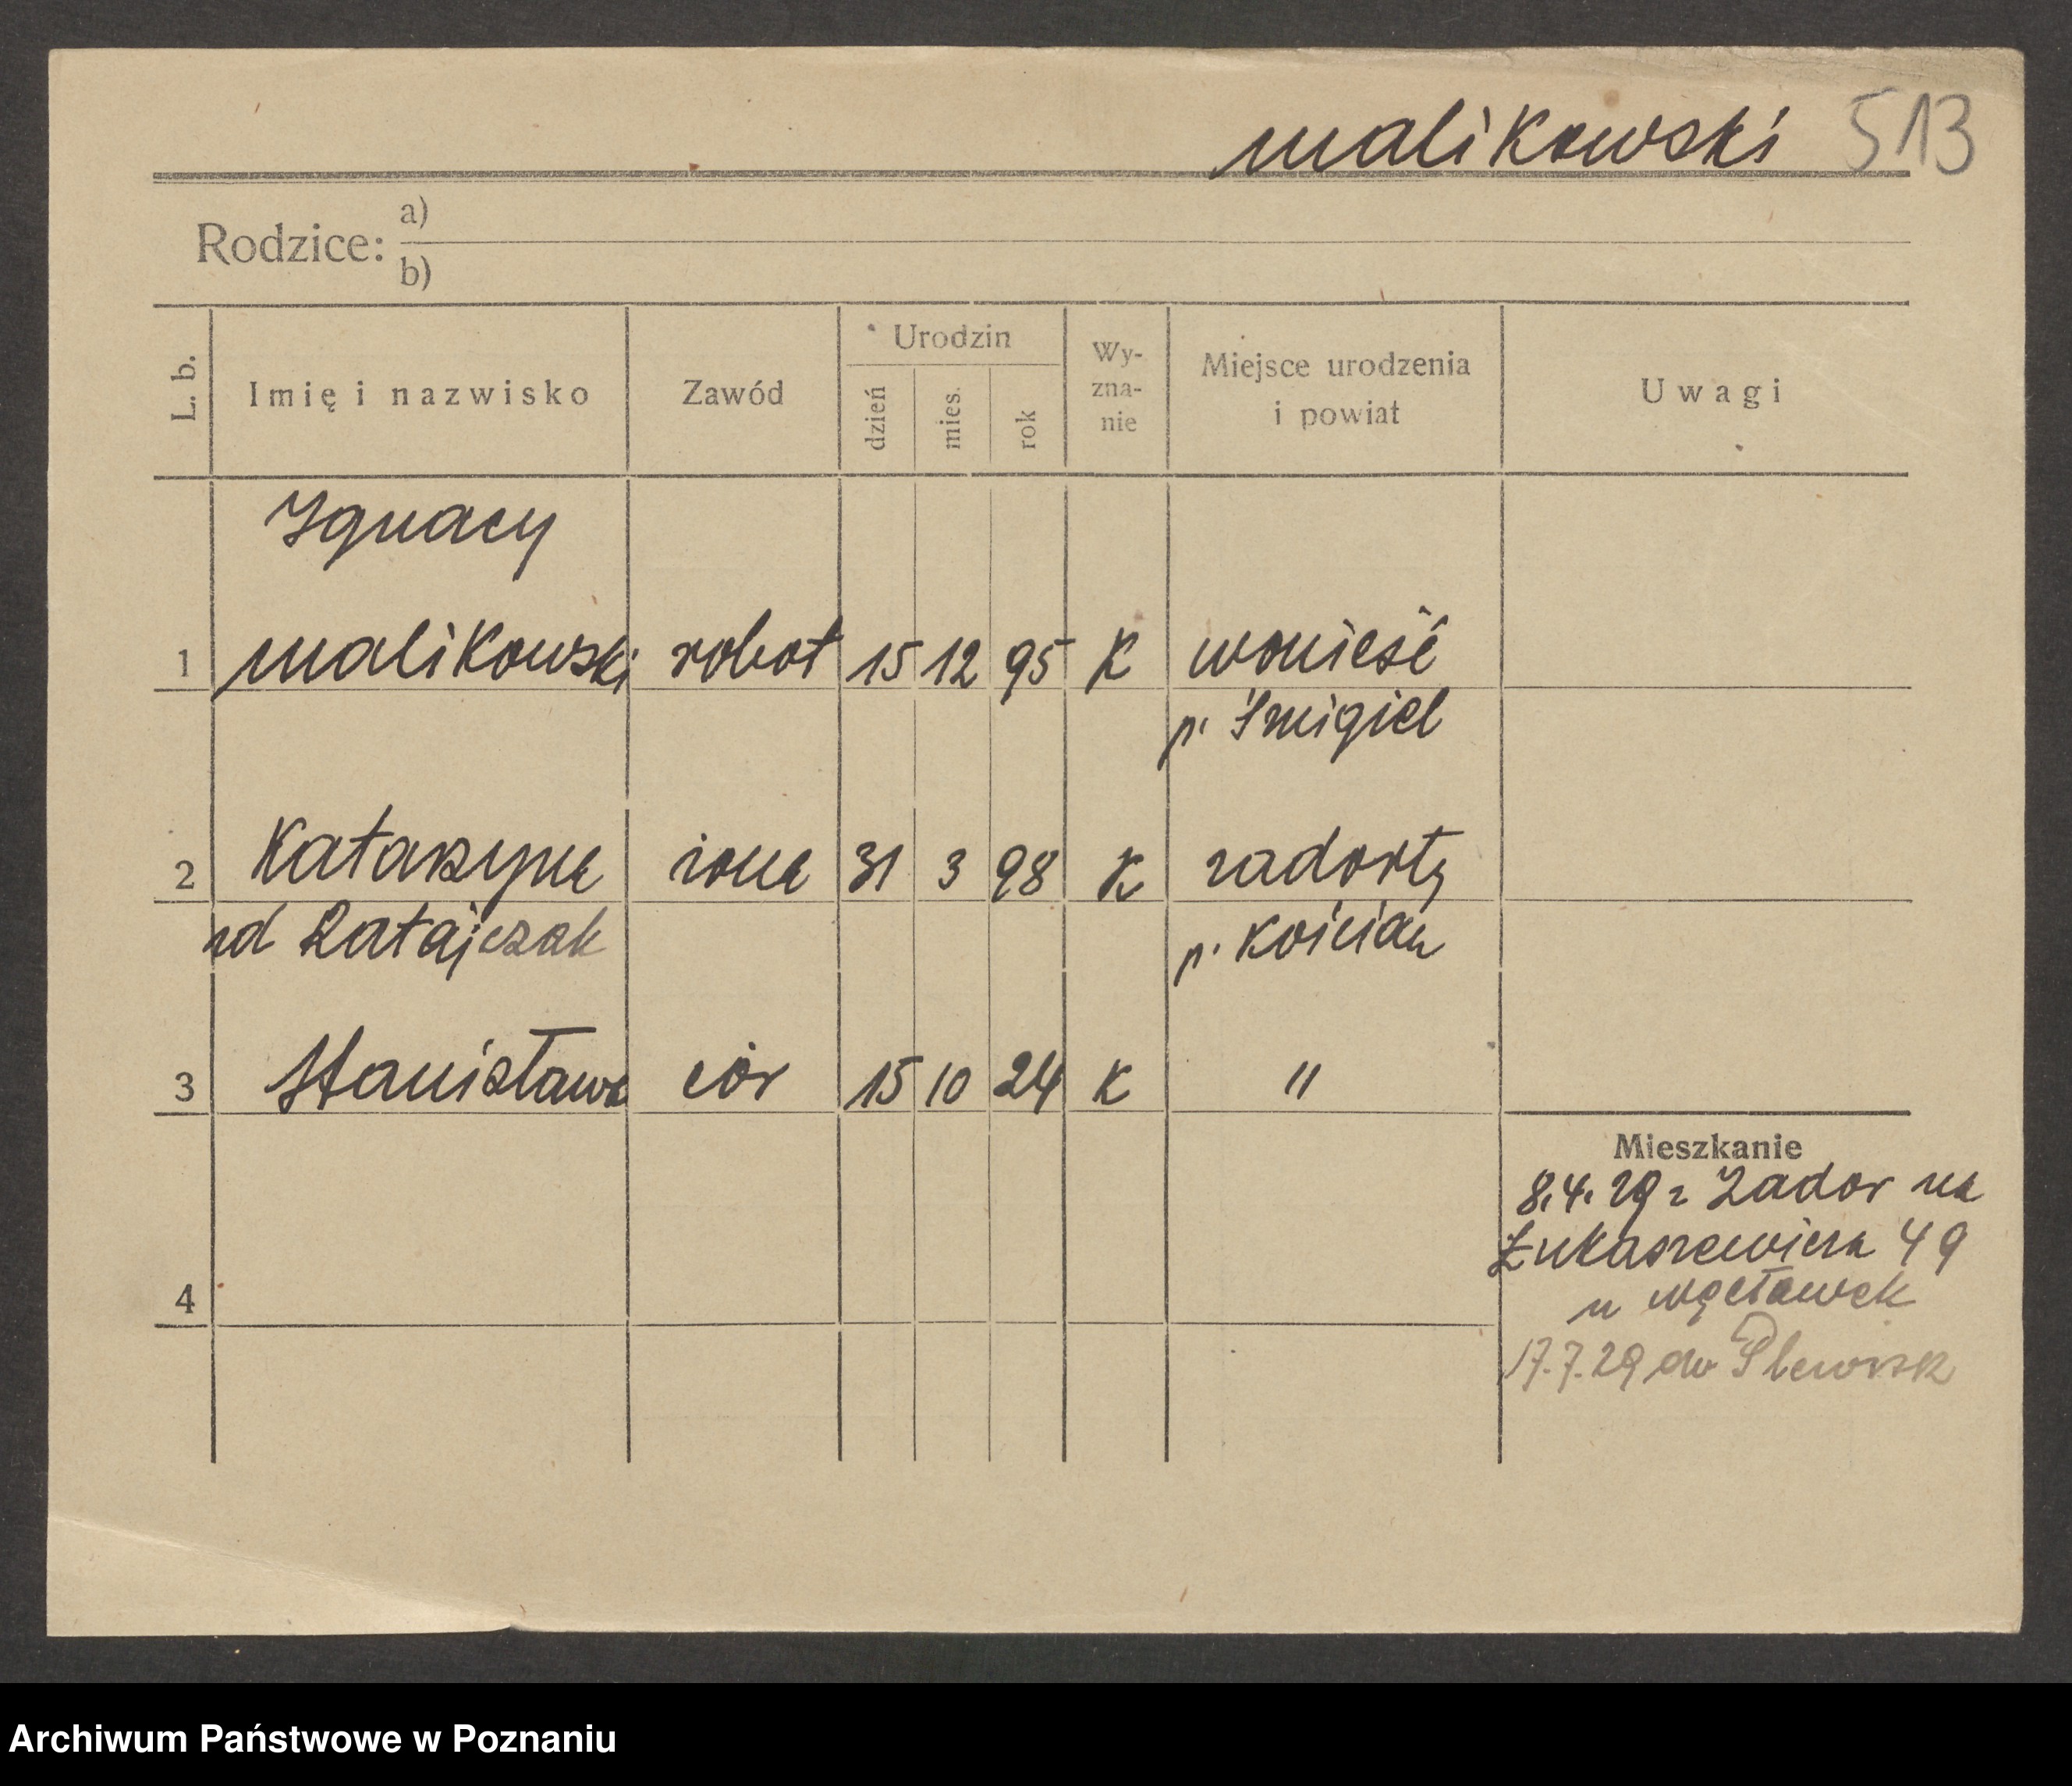 Malikowski 513
Rodzice: a)
b)
L. b. Imię i nazwisko Zawód Urodzin dzień mies. rok Wy-zna-nie Miejsce urodzenia i powiat Uwagi
Ignacy
1 Malikowski robot 15 12 95 K Wonieść
p. Śmigiel
2 Katarzyna żona 31 3 98 K Zadory
zd Ratajczak p. Kościan
3 Stanisława cór 15 10 24 K "
Mieszkanie
8.4.29 z Zador na
Łukaszewicza 49
u Węcławek
4
17.7.29 do
Archiwum Państwowe w Poznaniu